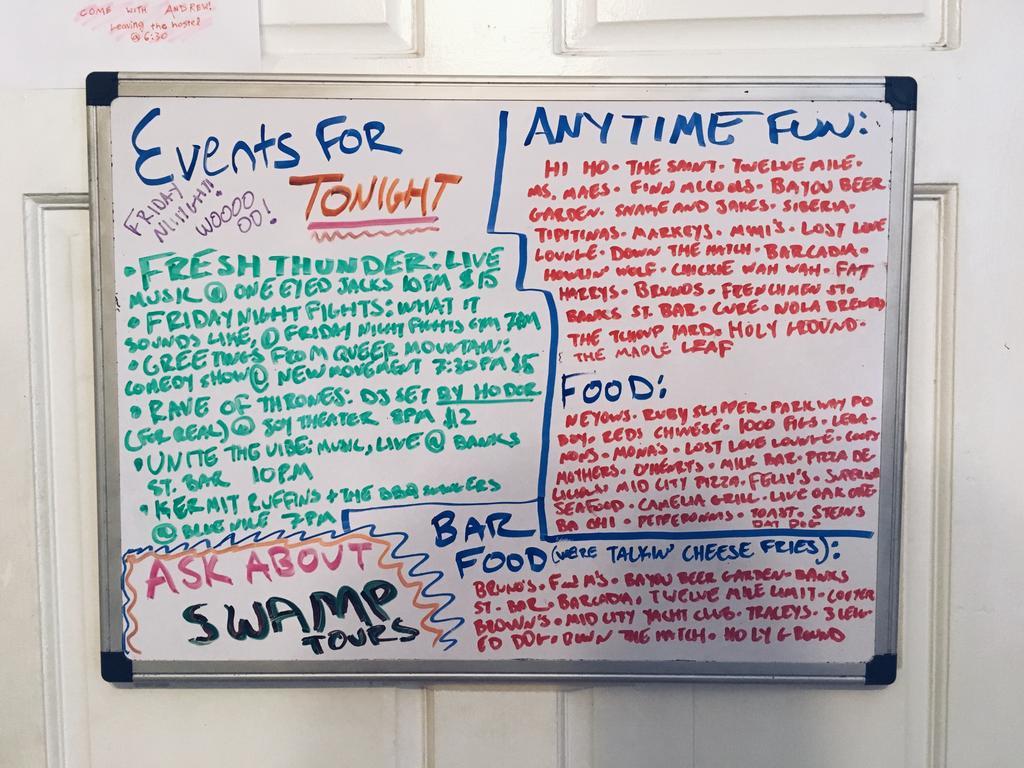 COME WITH ANDREW!
Leaving the hostel
@ 6:30
Events FOR
TONIGHT
FRIDAY
NIIIIGHT!!
WOOOO
OO!
• FRESH THUNDER: LIVE
MUSIC @ ONE EYED JACKS 10PM $15
• FRIDAY NIGHT FIGHTS: WHAT IT
SOUNDS LIKE, @ FRIDAY NIGHT FIGHTS GYM 7PM
• GREETINGS FROM QUEER MOUNTAIN:
COMEDY SHOW @ NEW MOVEMENT 7:30PM $5
• RAVE OF THRONES: DJ SET BY HODOR
(FOR REAL) @ JOY THEATER 8PM $12
• UNITE THE VIBE: MUSIC, LIVE @ BANKS
ST. BAR 10PM
• KERMIT RUFFINS + THE BBQ SWINGERS
@ BLUE NILE 7PM
ASK ABOUT
SWAMP
TOURS
ANYTIME FUN:
HI HO • THE SAINT • TWELVE MILE •
MS. MAES • FINN MCCOOLS • BAYOU BEER
GARDEN • SNAKE AND JAKES • SIBERIA •
TIPITINAS • MARKEYS • MIMI'S • LOST LOVE
LOUNGE • DOWN THE HATCH • BARCADIA •
HOWLIN' WOLF • CHICKIE WAH WAH • FAT
HARRYS • BRUNOS • FRENCHMEN ST. •
BANKS ST. BAR • CURE • NOLA BREWING
THE TCHOUP YARD • HOLY GROUND •
THE MAPLE LEAF
FOOD:
NEYOWS • RUBY SLIPPER • PARKWAY PO
BOY • REDS CHINESE • 1000 FIGS • LEBA-
NONS • MONA'S • LOST LOVE LOUNGE • COOPS
MOTHERS • O'HENRYS • MILK BAR • PIZZA DE-
LICIOUS • MID CITY PIZZA • FELIX'S • SUPERIOR
SEAFOOD • CAMELIA GRILL • LIVE OAK CAFE •
BA CHI • PEPPERONIS • TOAST • STEINS
DAT DOG
BAR
FOOD (WE'RE TALKIN' CHEESE FRIES):
BRUNO'S • F & M'S • BAYOU BEER GARDEN • BANKS
ST. BAR • BARCADIA • TWELVE MILE LIMIT • COOTER
BROWN'S • MID CITY YACHT CLUB • TRACEYS • 3 LEGG-
ED DOG • DOWN THE HATCH • HOLY GROUND